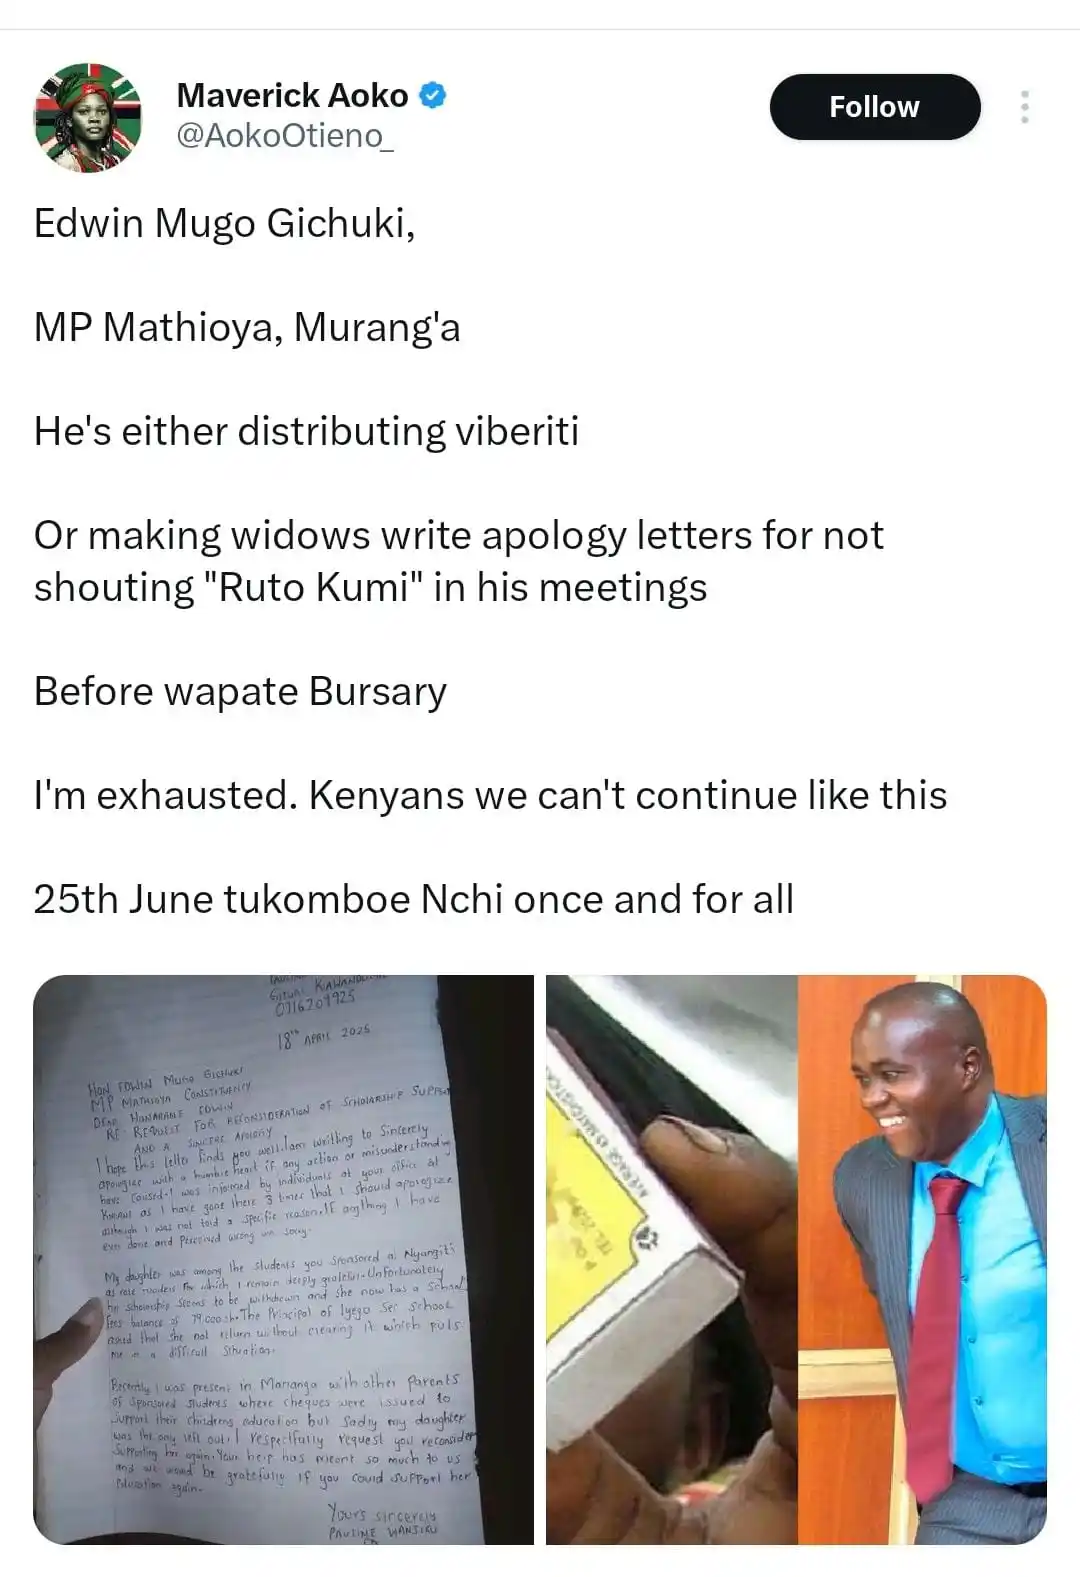 Maverick Aoko
@AokoOtieno_
Follow
Edwin Mugo Gichuki,
MP Mathioya, Murang'a
He's either distributing viberiti
Or making widows write apology letters for not
shouting "Ruto Kumi" in his meetings
Before wapate Bursary
I'm exhausted. Kenyans we can't continue like this
25th June tukomboe Nchi once and for all
18th APRIL 2025
HON EDWIN MUGO GICHUKI
MP MATHIOYA CONSTITUENCY
DEAR HONARABLE EDWIN
RE: REQUEST FOR RECONSIDERATION OF SCHOLARSHIP SUPPORT
AND A SINCERE APOLOGY
I hope this letter finds you well. I am writting to Sincerely
apologize with a humble heart if any action or misunderstanding
have caused. I was informed by individuals at your office at
as I have gone there 3 times that I should apologize
although I was not told a specific reason. If anything I have
ever done and perceived wrong um sorry.
My daughter was among the students you sponsored at Nyangiti
as role models for which I remain deeply grateful. Unfortunately
her scholarship seems to be withdrawn and she now has a school
fees balance of 79,000sh. The Principal of Iyego Sec School
asked that she not return without clearing it which puts
me in a difficult situation.
Recently I was present in Mananga with other parents
of sponsored students where cheques were issued to
support their childrens education but sadly my daughter
was the only left out. I respectfully request you reconsider
supporting her again. Your help has meant so much to us
and we would be gratefully if you could support her
education again.
Yours sincerely
PAULINE WANJIKU
AVERAGE 45 MATCHSTICKS